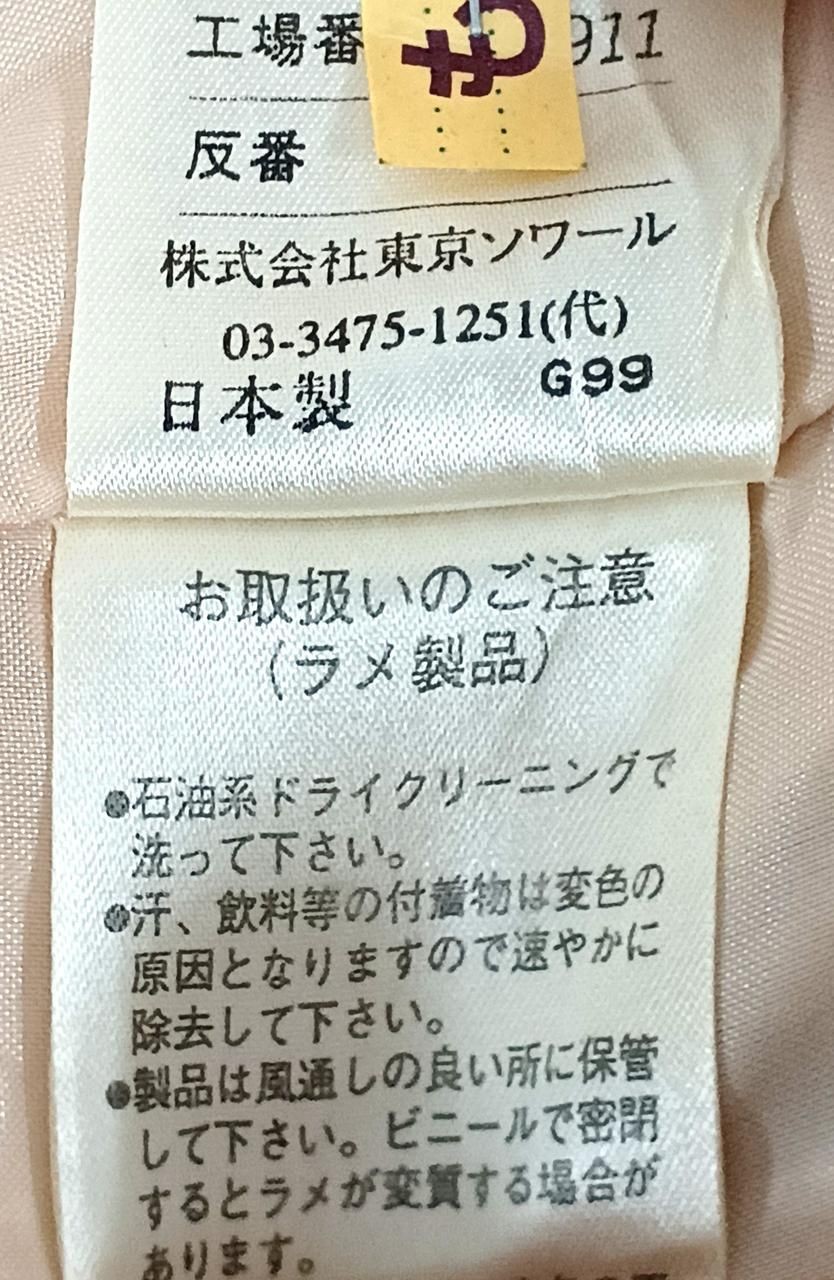 工場番
911
反番
株式会社東京ソワール
03-3475-1251(代)
日本製 G99
お取扱いのご注意
(ラメ製品)
●石油系ドライクリーニングで
洗って下さい。
●汗、飲料等の付着物は変色の
原因となりますので速やかに
除去して下さい。
●製品は風通しの良い所に保管
して下さい。ビニールで密閉
するとラメが変質する場合が
あります。